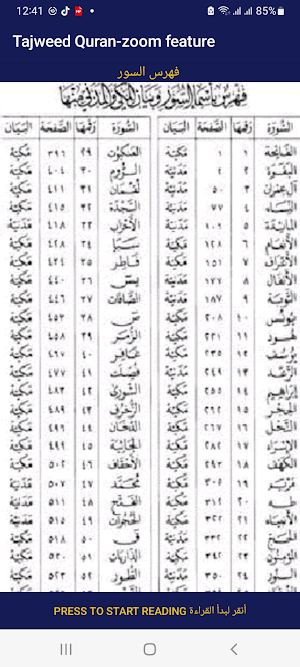 12:41
85%
Tajweed Quran-zoom feature
فهرس السور
السورة رقمها الصفحة البيان السورة رقمها الصفحة البيان
الفاتحة ١ ١ مكية العنكبوت ٢٩ ٣٩٦ مكية
البقرة ٢ ٢ مدنية الروم ٣٠ ٤٠٤ مكية
آل عمران ٣ ٥٠ مدنية لقمان ٣١ ٤١١ مكية
النساء ٤ ٧٧ مدنية السجدة ٣٢ ٤١٥ مكية
المائدة ٥ ١٠٦ مدنية الأحزاب ٣٣ ٤١٨ مدنية
الأنعام ٦ ١٢٨ مكية سبأ ٣٤ ٤٢٨ مكية
الأعراف ٧ ١٥١ مكية فاطر ٣٥ ٤٣٤ مكية
الأنفال ٨ ١٧٧ مدنية يس ٣٦ ٤٤٠ مكية
التوبة ٩ ١٨٧ مدنية الصافات ٣٧ ٤٤٦ مكية
يونس ١٠ ٢٠٨ مكية ص ٣٨ ٤٥٣ مكية
هود ١١ ٢٢١ مكية الزمر ٣٩ ٤٥٨ مكية
يوسف ١٢ ٢٣٥ مكية غافر ٤٠ ٤٦٧ مكية
الرعد ١٣ ٢٤٩ مدنية فصلت ٤١ ٤٧٧ مكية
إبراهيم ١٤ ٢٥٥ مكية الشورى ٤٢ ٤٨٣ مكية
الحجر ١٥ ٢٦٢ مكية الزخرف ٤٣ ٤٨٩ مكية
النحل ١٦ ٢٦٧ مكية الدخان ٤٤ ٤٩٦ مكية
الإسراء ١٧ ٢٨٢ مكية الجاثية ٤٥ ٤٩٩ مكية
الكهف ١٨ ٢٩٣ مكية الأحقاف ٤٦ ٥٠٢ مكية
مريم ١٩ ٣٠٥ مكية محمد ٤٧ ٥٠٧ مدنية
طه ٢٠ ٣١٢ مكية الفتح ٤٨ ٥١١ مدنية
الأنبياء ٢١ ٣٢٢ مكية الحجرات ٤٩ ٥١٥ مدنية
الحج ٢٢ ٣٣٢ مدنية ق ٥٠ ٥١٨ مكية
المؤمنون ٢٣ ٣٤٢ مكية الذاريات ٥١ ٥٢٠ مكية
النور ٢٤ ٣٥٠ مدنية الطور ٥٢ ٥٢٣ مكية
PRESS TO START READING أنقر لبدأ القراءة